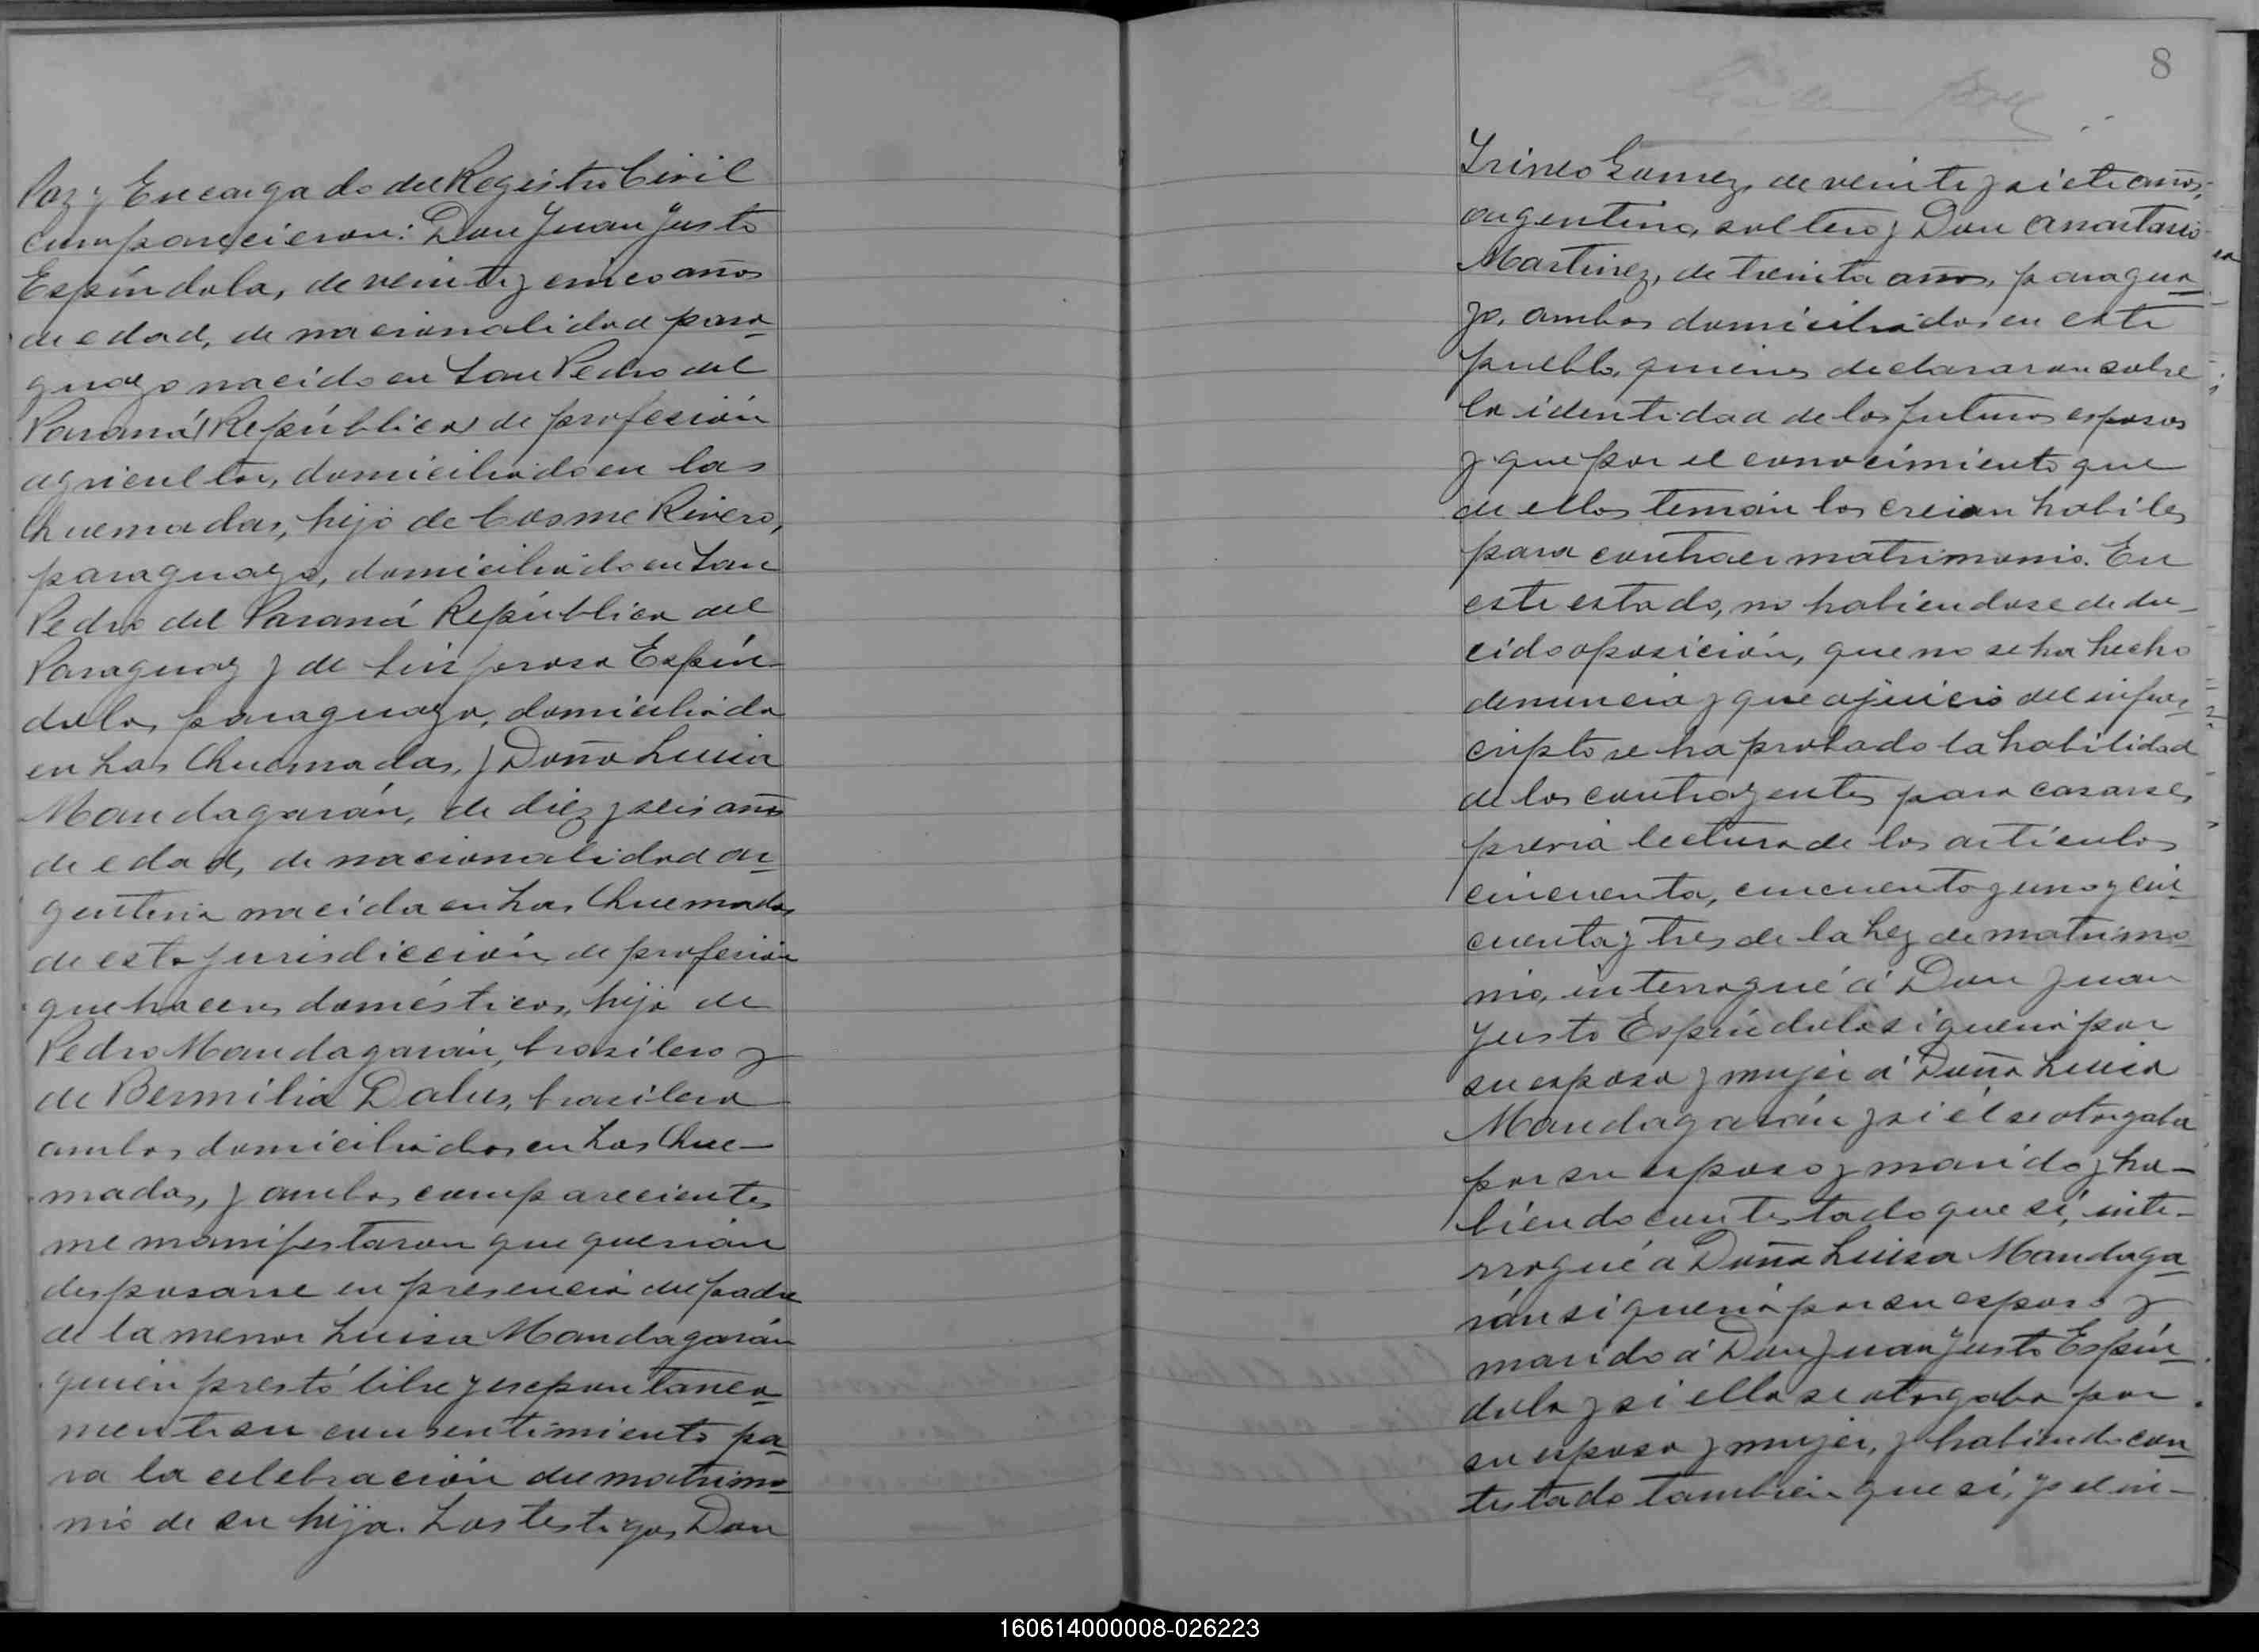 Paz y Encargado del Registro Civil
comparecieron: Don Juan Justo
Espíndola, de veinte y cinco años
de edad, de nacionalidad para-
guayo nacido en San Pedro del
Paraná (República) de profesión
agricultor, domiciliado en las
Quemadas, hijo de Cosme Rivero,
paraguayo, domiciliado en San
Pedro del Paraná República del
Paraguay y de Sinforosa Espín-
dola, paraguaya, domiciliada
en Las Quemadas, y Doña Luisa
Mandagarán, de diez y seis años
de edad, de nacionalidad ar-
gentina nacida en Las Quemadas
de esta jurisdicción de profesión
quehaceres domésticos, hija de
Pedro Mandagarán, brasilero y
de Bermilia Dalus, brasilera
ambos domiciliados en Las Que-
madas, y ambos comparecientes
me manifestaron que querían
desposarse en presencia del padre
de la menor Luisa Mandagarán
quien prestó libre y espontanea-
mente su consentimiento pa-
ra la celebración del matrimo-
nio de su hija. Los testigos, Don
8
Irineo Gomez, de veinte y siete años,
argentino, soltero y Don Anastasio
Martinez, de treinta años, paragua-
yo, ambos domiciliados en este
pueblo, quienes declararon sobre
la identidad de los futuros esposos
y que por el conocimiento que
de ellos tenían los creían hábiles
para contraer matrimonio. En
este estado, no habiendose dedu-
cido oposición, que no se ha hecho
denuncia y que a juicio del infras-
cripto se ha probado la habilidad
de los contrayentes para casarse,
previa lectura de los artículos
cincuenta, cincuenta y uno y cin-
cuenta y tres de la Ley de matrimo-
nio, interrogué á Don Juan
Justo Espíndola si quería por
su esposa y mujer á Doña Luisa
Mandagarán y si él se otorgaba
por su esposo y marido y ha-
biendo contestado que sí, inte-
rrogué a Doña Luisa Mandaga-
rán si quería por su esposo y
marido á Don Juan Justo Espín-
dola y si ella se otorgaba por
su esposa y mujer, y habiendo con-
testado también que sí, yo el in-
160614000008-026223